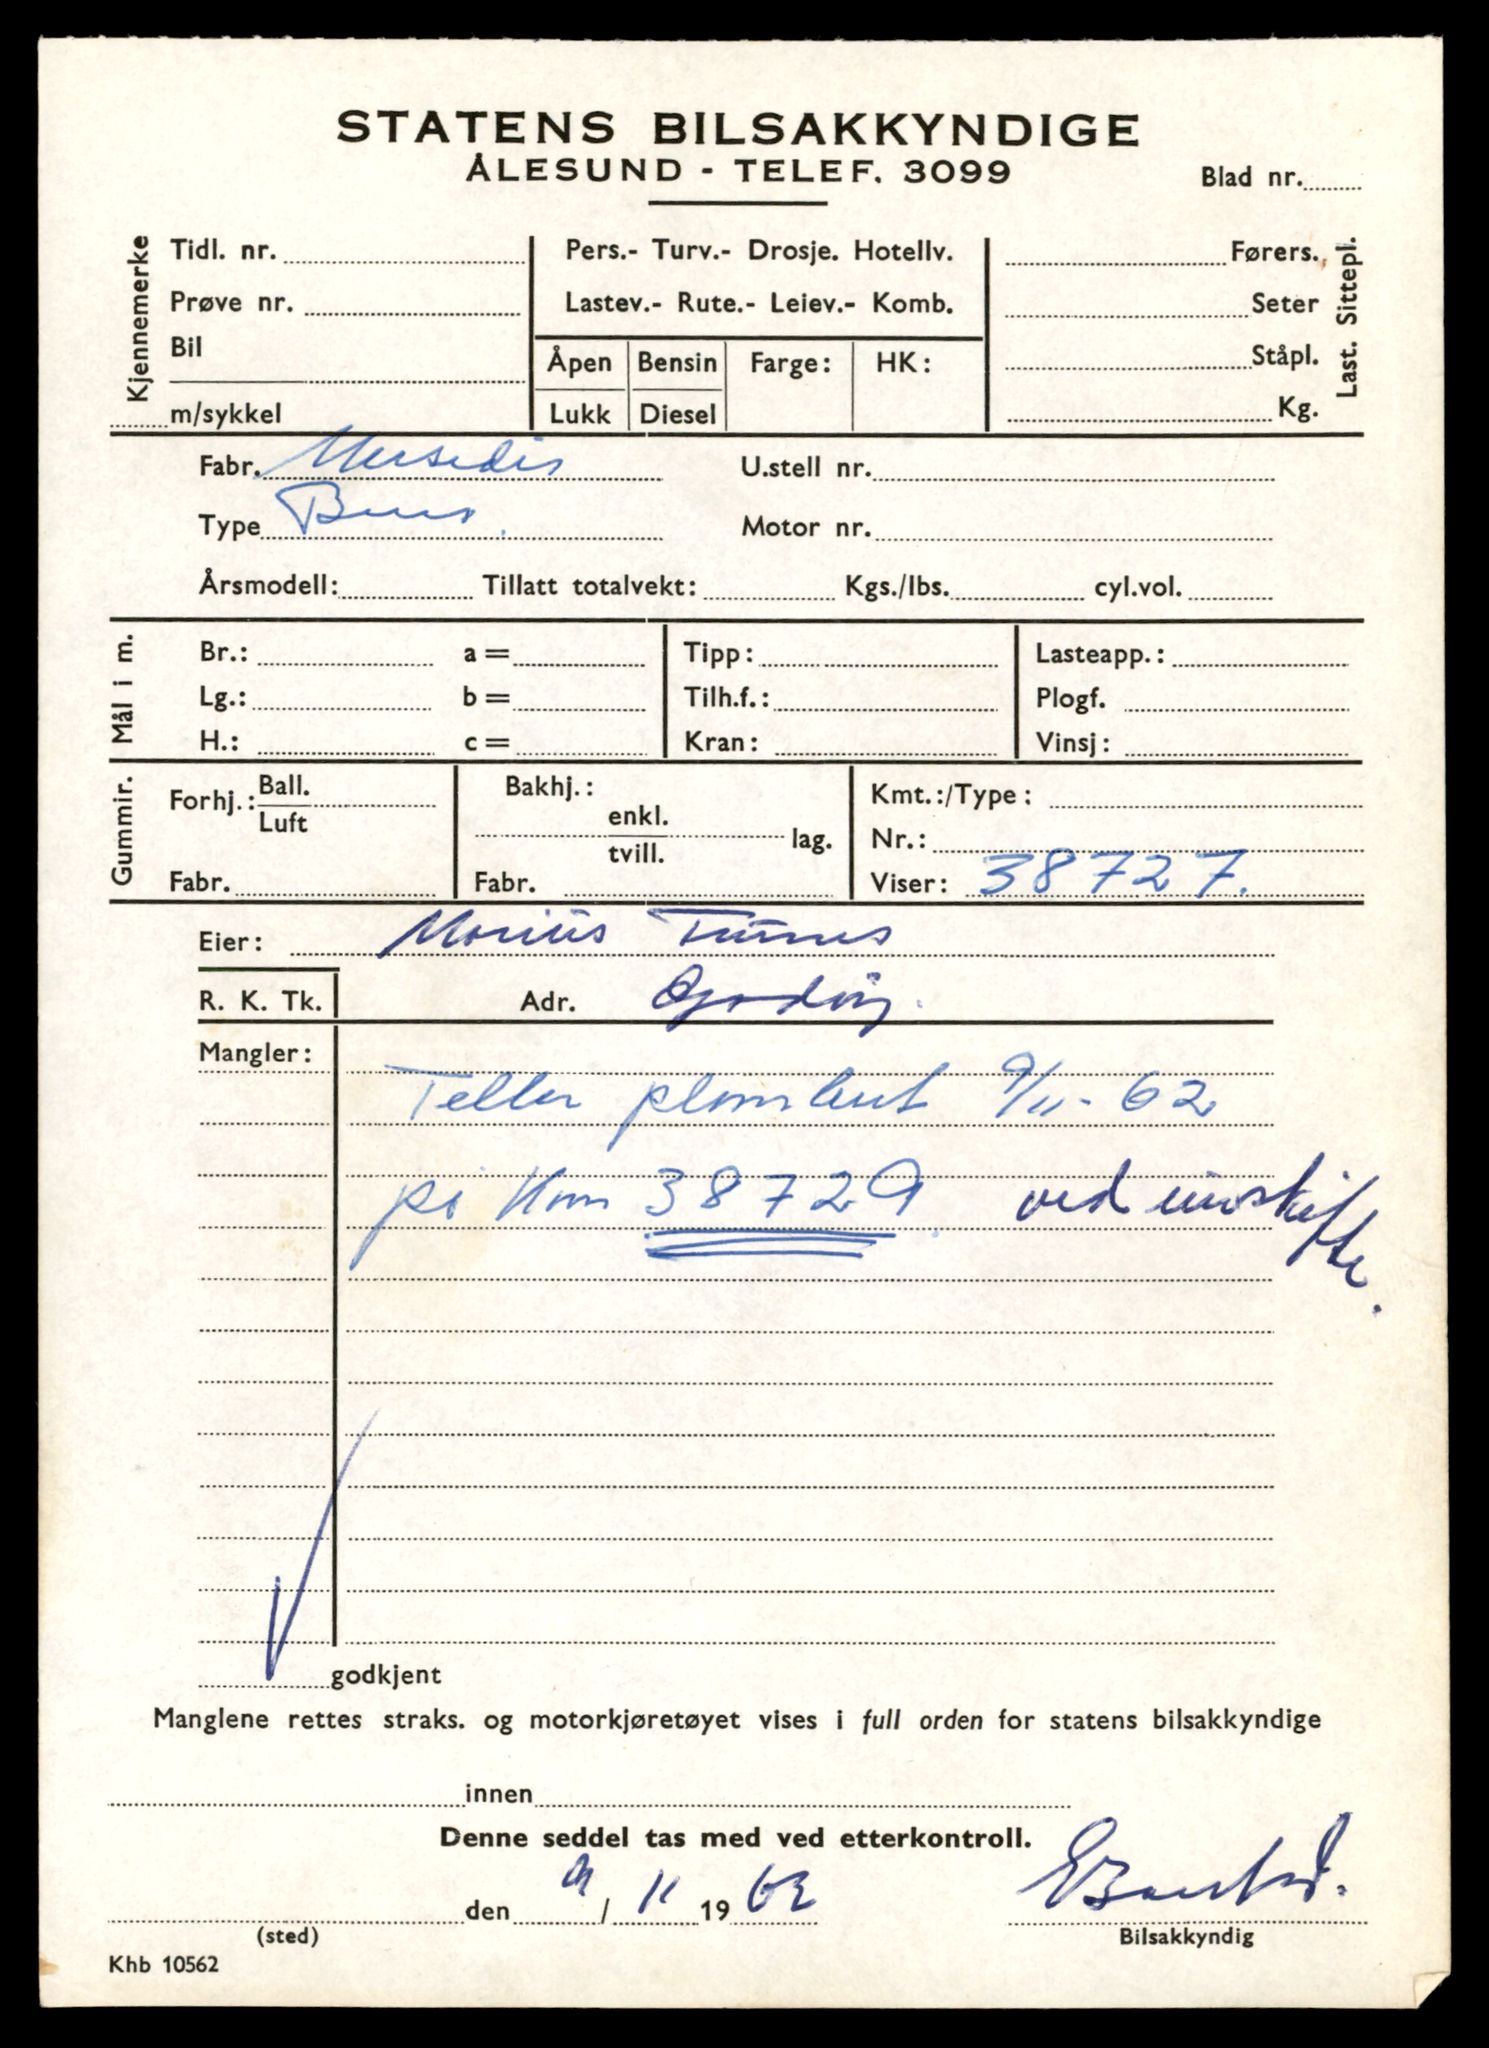 STATENS BILSAKKYNDIGE
ÅLESUND - TELEF. 3099
Blad nr.
Kjennemerke
Tidl. nr.
Prøve nr.
Bil
m/sykkel
Pers.- Turv.- Drosje. Hotellv.
Lastev.- Rute.- Leiev.- Komb.
Åpen Bensin Farge: HK:
Lukk Diesel
Førers.
Seter
Ståpl.
Kg.
Last. Sittepl.
Fabr. Mersedes
U.stell nr.
Type Buss.
Motor nr.
Årsmodell: Tillatt totalvekt: Kgs./lbs. cyl.vol.
Mål i m.
Br.: a = Tipp: Lasteapp.:
Lg.: b = Tilh.f.: Plogf.
H.: c = Kran: Vinsj:
Gummir.
Forhj.: Ball.
Luft
Fabr.
Bakhj.:
enkl.
tvill. lag.
Fabr.
Kmt.:/Type:
Nr.:
Viser: 38727.
Eier: Marius
R. K. Tk. Adr.
Mangler:
Teller plombert 9/11-62
på Km 38729. ved innskifte.
godkjent
Manglene rettes straks. og motorkjøretøyet vises i full orden for statens bilsakkyndige
innen
Denne seddel tas med ved etterkontroll.
den 9/11 1962
(sted)
Bilsakkyndig
Khb 10562